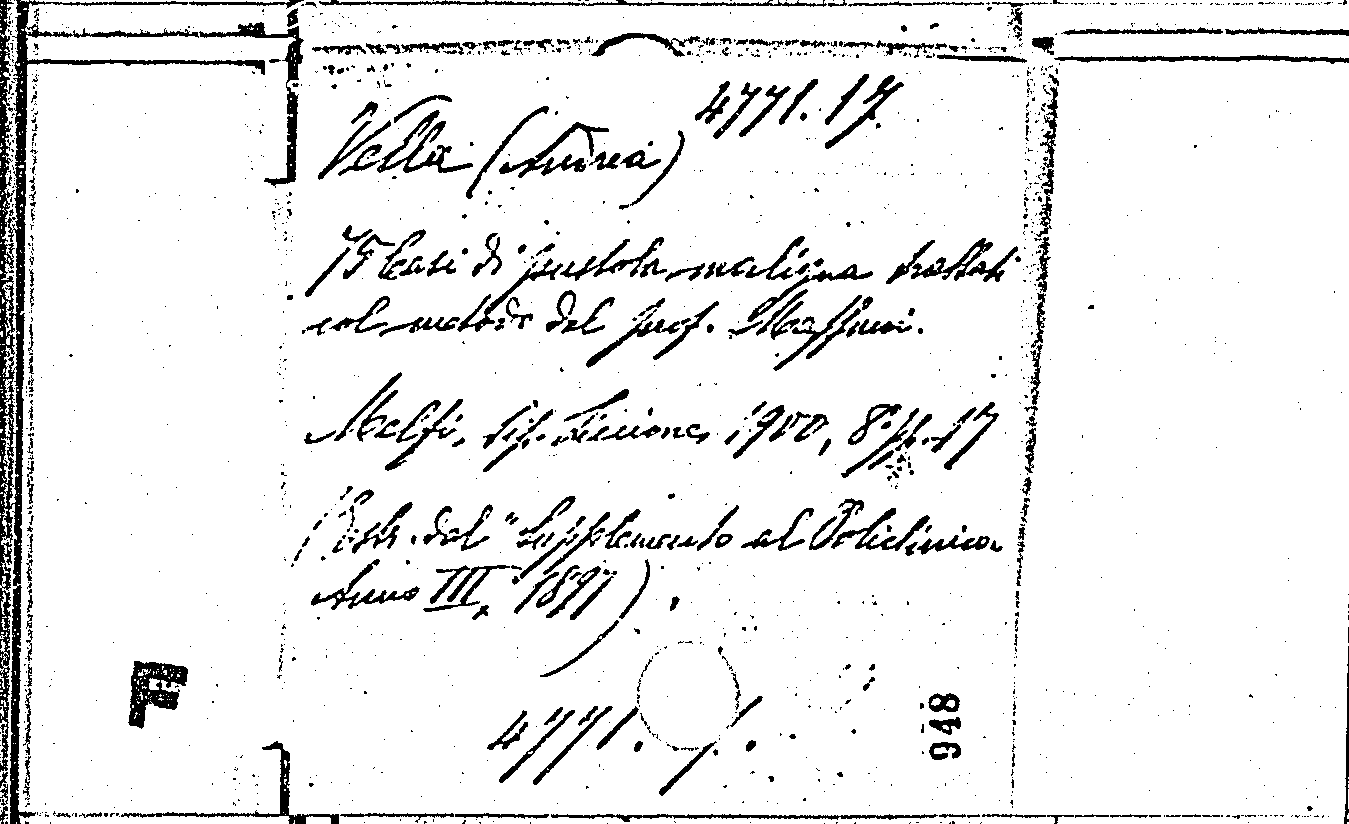 4771.17.
Vella (Andrea)
75 Casi di pustola maligna trattati
col metodo del prof. Maffucci.
Melfi, tip. Liccione, 1900, 8° pp. 17
(Estr. dal "Supplemento al Policlinico.
Anno III, 1897).
4771.
948
F